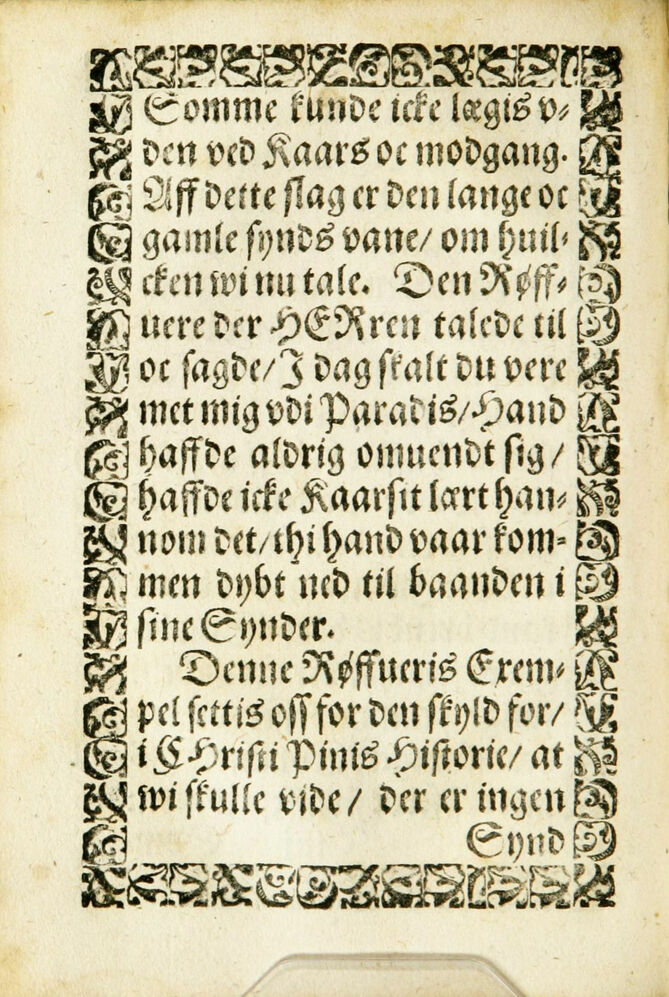 Somme kunde icke lægis v⸗
den ved Kaars oc modgang.
Aff dette slag er den lange oc
gamle synds vane/ om huil⸗
cken wi nu tale. Den Røff⸗
uere der HERren talede til
oc sagde/ I dag skalt du vere
met mig vdi Paradis/ Hand
haffde aldrig omuendt sig/
haffde icke Kaarsit lært han⸗
nom det/ thi hand vaar kom⸗
men dybt ned til baanden i
sine Synder.
Denne Røffueris Exem⸗
pel settis oss for den skyld for/
i CHristi Pinis Historie/ at
wi skulle vide/ der er ingen
Synd